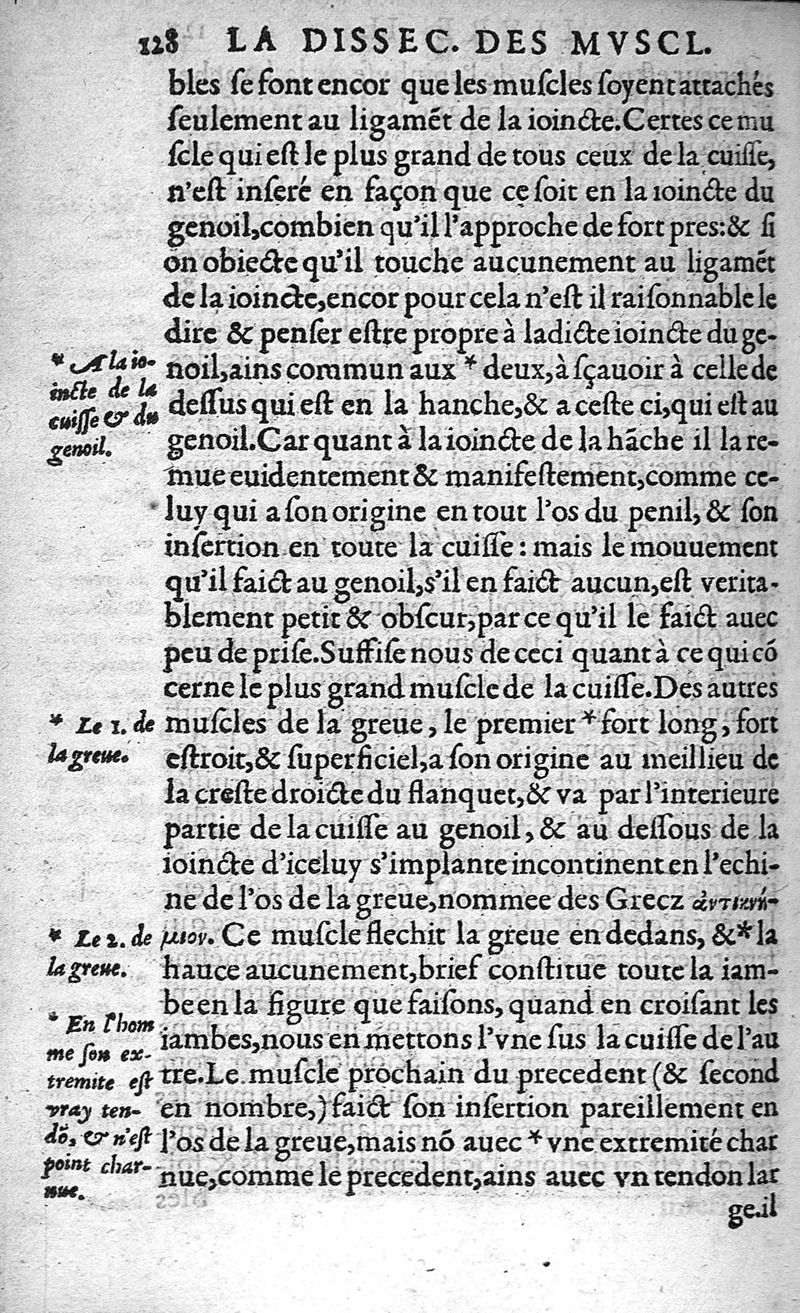 128 LA DISSEC. DES MVSCL.
bles ſe font encor que les muſcles ſoyent attachés
ſeulement au ligamẽt de la ioincte. Certes ce mu
ſcle qui eſt le plus grand de tous ceux de la cuiſſe,
n'eſt inſeré en façon que ce ſoit en la ioincte du
genoil, combien qu'il l'approche de fort pres: & ſi
on obiecte qu'il touche aucunement au ligamẽt
de la ioincte, encor pour cela n'eſt il raiſonnable le
dire & penſer eſtre propre à ladicte ioincte du ge-
noil, ains commun aux * deux, à ſçauoir à celle de
deſſus qui eſt en la hanche, & a ceſte ci, qui eſt au
genoil. Car quant à la ioincte de la hãche il la re-
mue euidentement & manifeſtement, comme ce-
luy qui a ſon origine en tout l'os du penil, & ſon
inſertion en toute la cuiſſe: mais le mouuement
qu'il faict au genoil, s'il en faict aucun, eſt verita-
blement petit & obſcur, par ce qu'il le faict auec
peu de priſe. Suffiſe nous de ceci quant à ce qui cõ
cerne le plus grand muſcle de la cuiſſe. Des autres
muſcles de la greue, le premier * fort long, fort
eſtroit, & ſuperficiel, a ſon origine au meillieu de
la creſte droicte du flanquet, & va par l'interieure
partie de la cuiſſe au genoil, & au deſſous de la
ioincte d'iceluy s'implante incontinent en l'echi-
ne de l'os de la greue, nommee des Grecz ἀντικνή-
μιον. Ce muſcle flechit la greue en dedans, & * la
hauce aucunement, brief conſtitue toute la iam-
be en la figure que faiſons, quand en croiſant les
iambes, nous en mettons l'vne ſus la cuiſſe de l'au
tre. Le muſcle prochain du precedent (& ſecond
en nombre,) faict ſon inſertion pareillement en
l'os de la greue, mais nõ auec * vne extremité char
nue, comme le precedent, ains auec vn tendon lar
ge. il
* A la io-
incte de la
cuiſſe & du
genoil.
* Le 1. de
la greue.
* Le 2. de
la greue.
* En l'hom
me ſon ex-
tremite eſt
vray ten-
dõ, & n'eſt
point char-
nue.